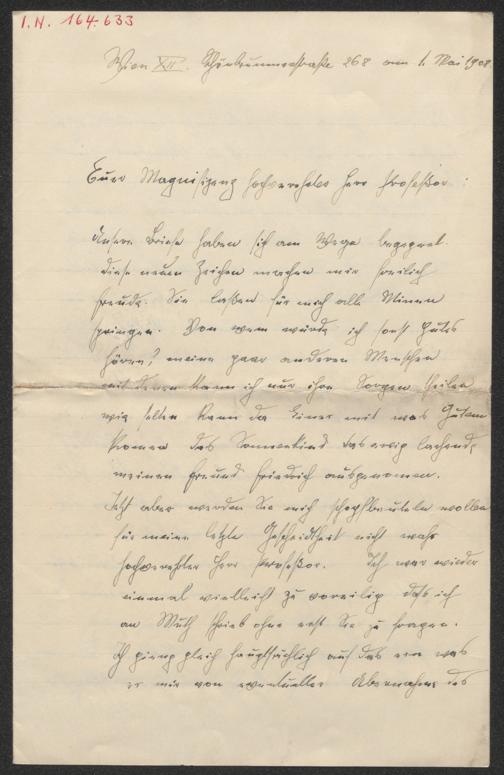 I.N. 164.633
Wien XII. Schönbrunnerstraße 268 am 1. Mai 1908
Euer Magnifizenz hochverehrter Herr Professor:
Unsere Briefe haben sich am Wege begegnet.
diese neuen Zeichen machen mir freilich
Freude. Sie laßen für mich alle Minen
springen. Von wem würde ich sonst Gutes
hören? meine paar anderen Menschen
mit denen kann ich nur ihre Sorgen theilen
wie selten kann da Einer mit was Gutem
kommen das Sonnenkind das ewig lachende
meinen Freund Friedrich ausgenomen.
Jetzt aber werden Sie mich schopfbeuteln wollen
für meine letzte Gescheidtheit nicht wahr
hochverehrter Herr Professor. Ich war wieder
einmal vielleicht zu voreilig daß ich
an Muth schrieb ohne erst Sie zu fragen.
Ich gieng gleich hauptsächlich auf das ein was
er mir von eventueller Übernahme des